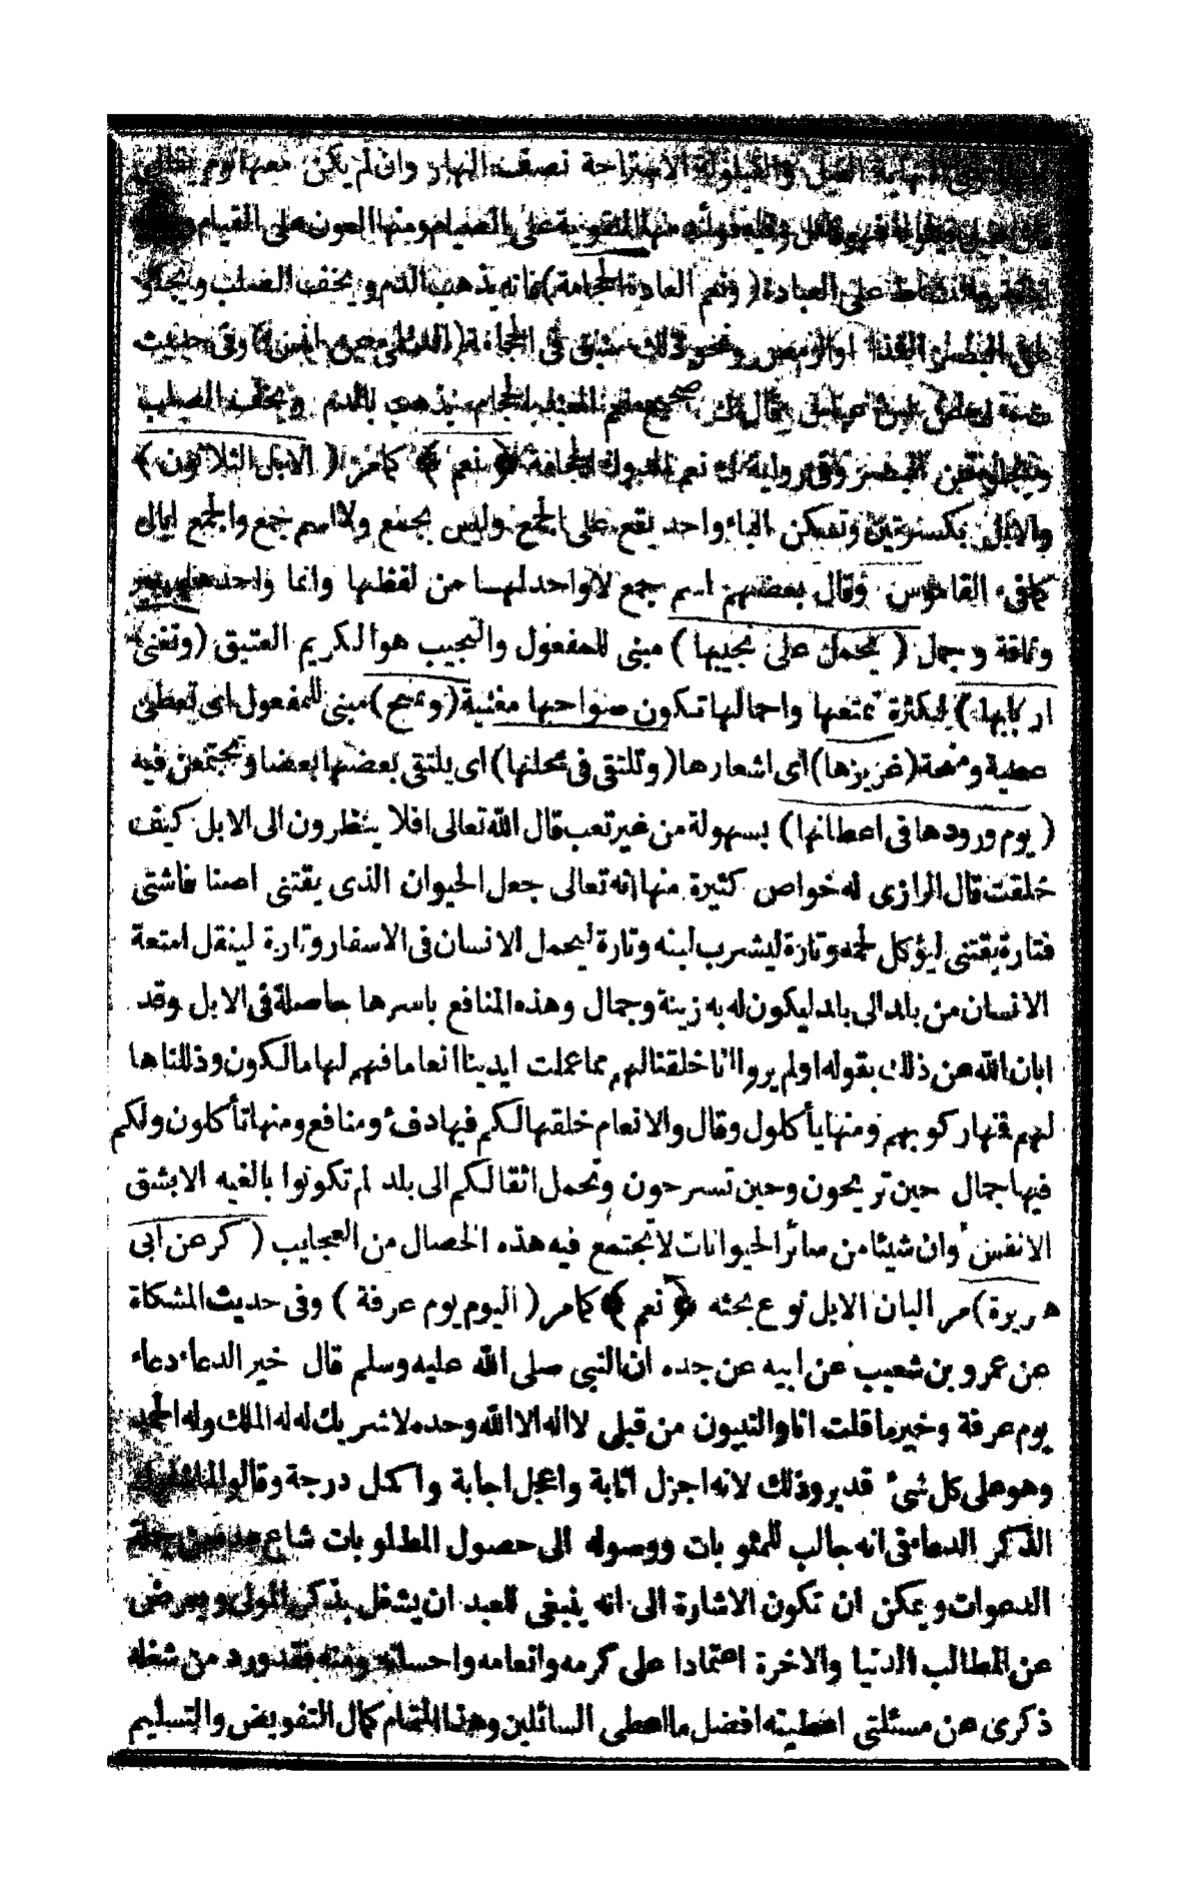 الاستراحة نصف النهار وان لم يكن معها نوم يقال
منها التقوية على الصيام ومنها العون على القيام
على العبادة (ونعم العادة الحجامة) فانه يذهب الدم ويخفف الصلب ويجلو
عن البصر القذا او الرمص ونحو ذلك سبق فى الحجامة (الديلمى عن انس) وفى حديث
ابن عباس وقال ك صحيح نعم العبد الحجام يذهب بالدم ويخف الصلب
ويجلو عن البصر وفى رواية ك نعم الدواء الحجامة ﴿ نعم ﴾ كما مر ( الابل الثلاثون )
والابل بكسرتين وتسكن الباء واحد يقع على الجمع وليس بجمع ولا اسم جمع والجمع ابال
كما فى القاموس وقال بعضهم اسم جمع لا واحد لها من لفظها وانما واحدها بعير
وناقة وجمل ( يحمل على نجيبها ) مبنى للمفعول والنجيب هو الكريم العتيق (وتغنى
اربابها ) لكثرة تمتعها واحمالها تكون صواحبها مغنية (وتمنح) مبنى للمفعول اى تعطى
عطية ومنحة (غزيزها) اى اشعارها (وتلتقى فى محلنها) اى يلتقى بعضها بعضا ويجتمعن فيه
( يوم ورودها فى اعطانها ) بسهولة من غير تعب قال الله تعالى افلا ينظرون الى الابل كيف
خلقت قال الرازى له خواص كثيرة منها انه تعالى جعل الحيوان الذى يقتنى اصنافا شتى
فتارة يقتنى ليؤكل لحمه وتارة ليشرب لبنه وتارة ليحمل الانسان فى الاسفار وتارة لينقل امتعة
الانسان من بلد الى بلد ليكون له به زينة وجمال وهذه المنافع باسرها حاصلة فى الابل وقد
ابان الله عن ذلك بقوله اولم يروا انا خلقنا لهم مما عملت ايدينا انعاما فهم لها مالكون وذللناها
لهم فنها ركوبهم ومنها يأكلول وقال والانعام خلقها لكم فيها دفء ومنافع ومنها تأكلون ولكم
فيها جمال حين تريحون وحين تسرحون وتحمل اثقالكم الى بلد لم تكونوا بالغيه الا بشق
الانفس وان شيئا من سائر الحيوانات لا تجتمع فيه هذه الخصال من العجايب ( كر عن ابى
هريرة ) مر البان الابل نوع بحثه ﴿ نعم ﴾ كما مر ( اليوم يوم عرفة ) وفى حديث المشكاة
عن عمرو بن شعيب عن ابيه عن جده ان النبى صلى الله عليه وسلم قال خير الدعاء دعاء
يوم عرفة وخير ما قلت انا والنبيون من قبلى لا اله الا الله وحده لا شريك له له الملك وله الحمد
وهو على كل شئ قدير وذلك لانه اجزل اثابة واعجل اجابة واكمل درجة وقالوا
الذكر الدعاء فى انه جالب للمثوبات ووصوله الى حصول المطلوبات شاع
الدعوات ويمكن ان تكون الاشارة الى انه ينبغى للعبد ان يشتغل بذكر المولى ويعرض
عن المطالب الدنيا والاخرة اعتمادا على كرمه وانعامه واحسانه ومنه فقد ورد من شغله
ذكرى عن مسئلتى اعطيته افضل ما اعطى السائلين وهذا المقام كمال التفويض والتسليم